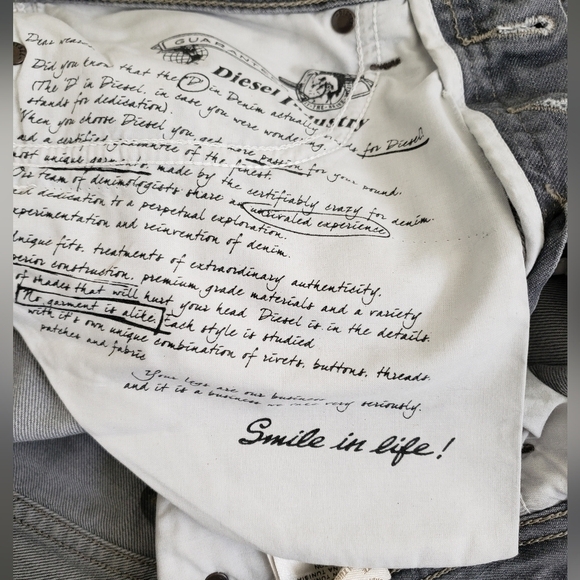 Dear wearer,
GUARANTY
Did you know that the 'D' in Denim actually
Diesel Industry
(The 'D' in Diesel, in case you were wondering, for Diesel
stands for dedication).
When you choose Diesel you get more passion for your pound.
and a certified guarantee of the finest.
most unique garments made by the certifiably crazy for denim.
Our team of denimologists share an unrivaled experience
and dedication to a perpetual exploration.
experimentation and reinvention of denim.
Unique fits. treatments of extraordinary authenticity.
superior construction. premium grade materials and a variety
of shades that will hurt your head Diesel is in the details.
No garment is alike, Each style is studied
with it's own unique combination of rivets. buttons. threads.
patches and fabric
Your legs are our business
and it is a business we take very seriously.
Smile in life!